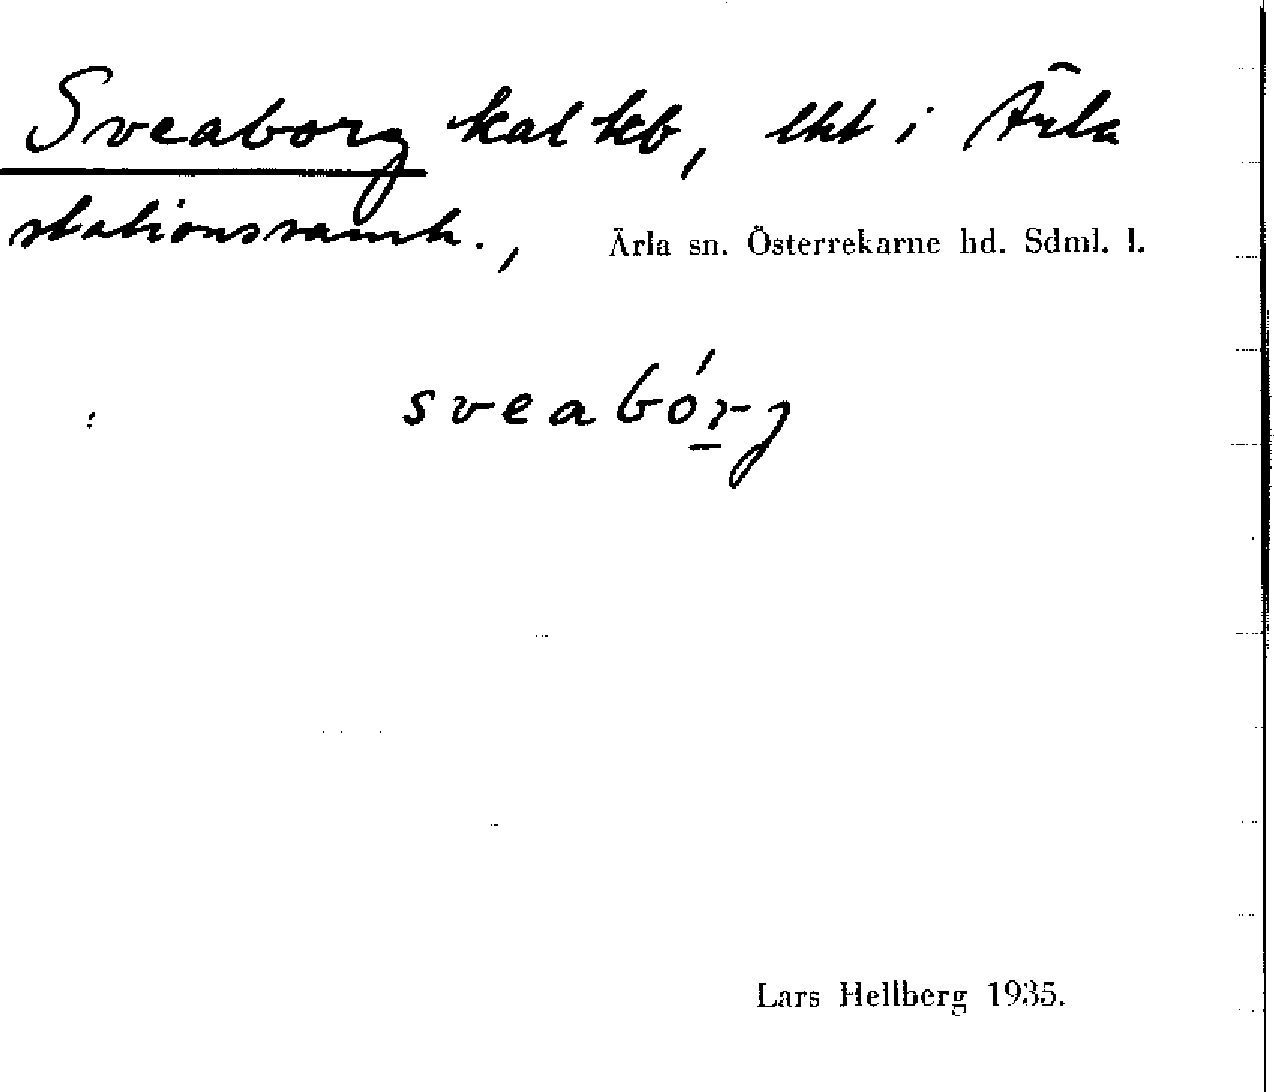 Sveaborg kal heb, lht i Ärla
stationssamh., Ärla sn. Österrekarne hd. Sdml. l.
sveabórg
Lars Hellberg 1935.